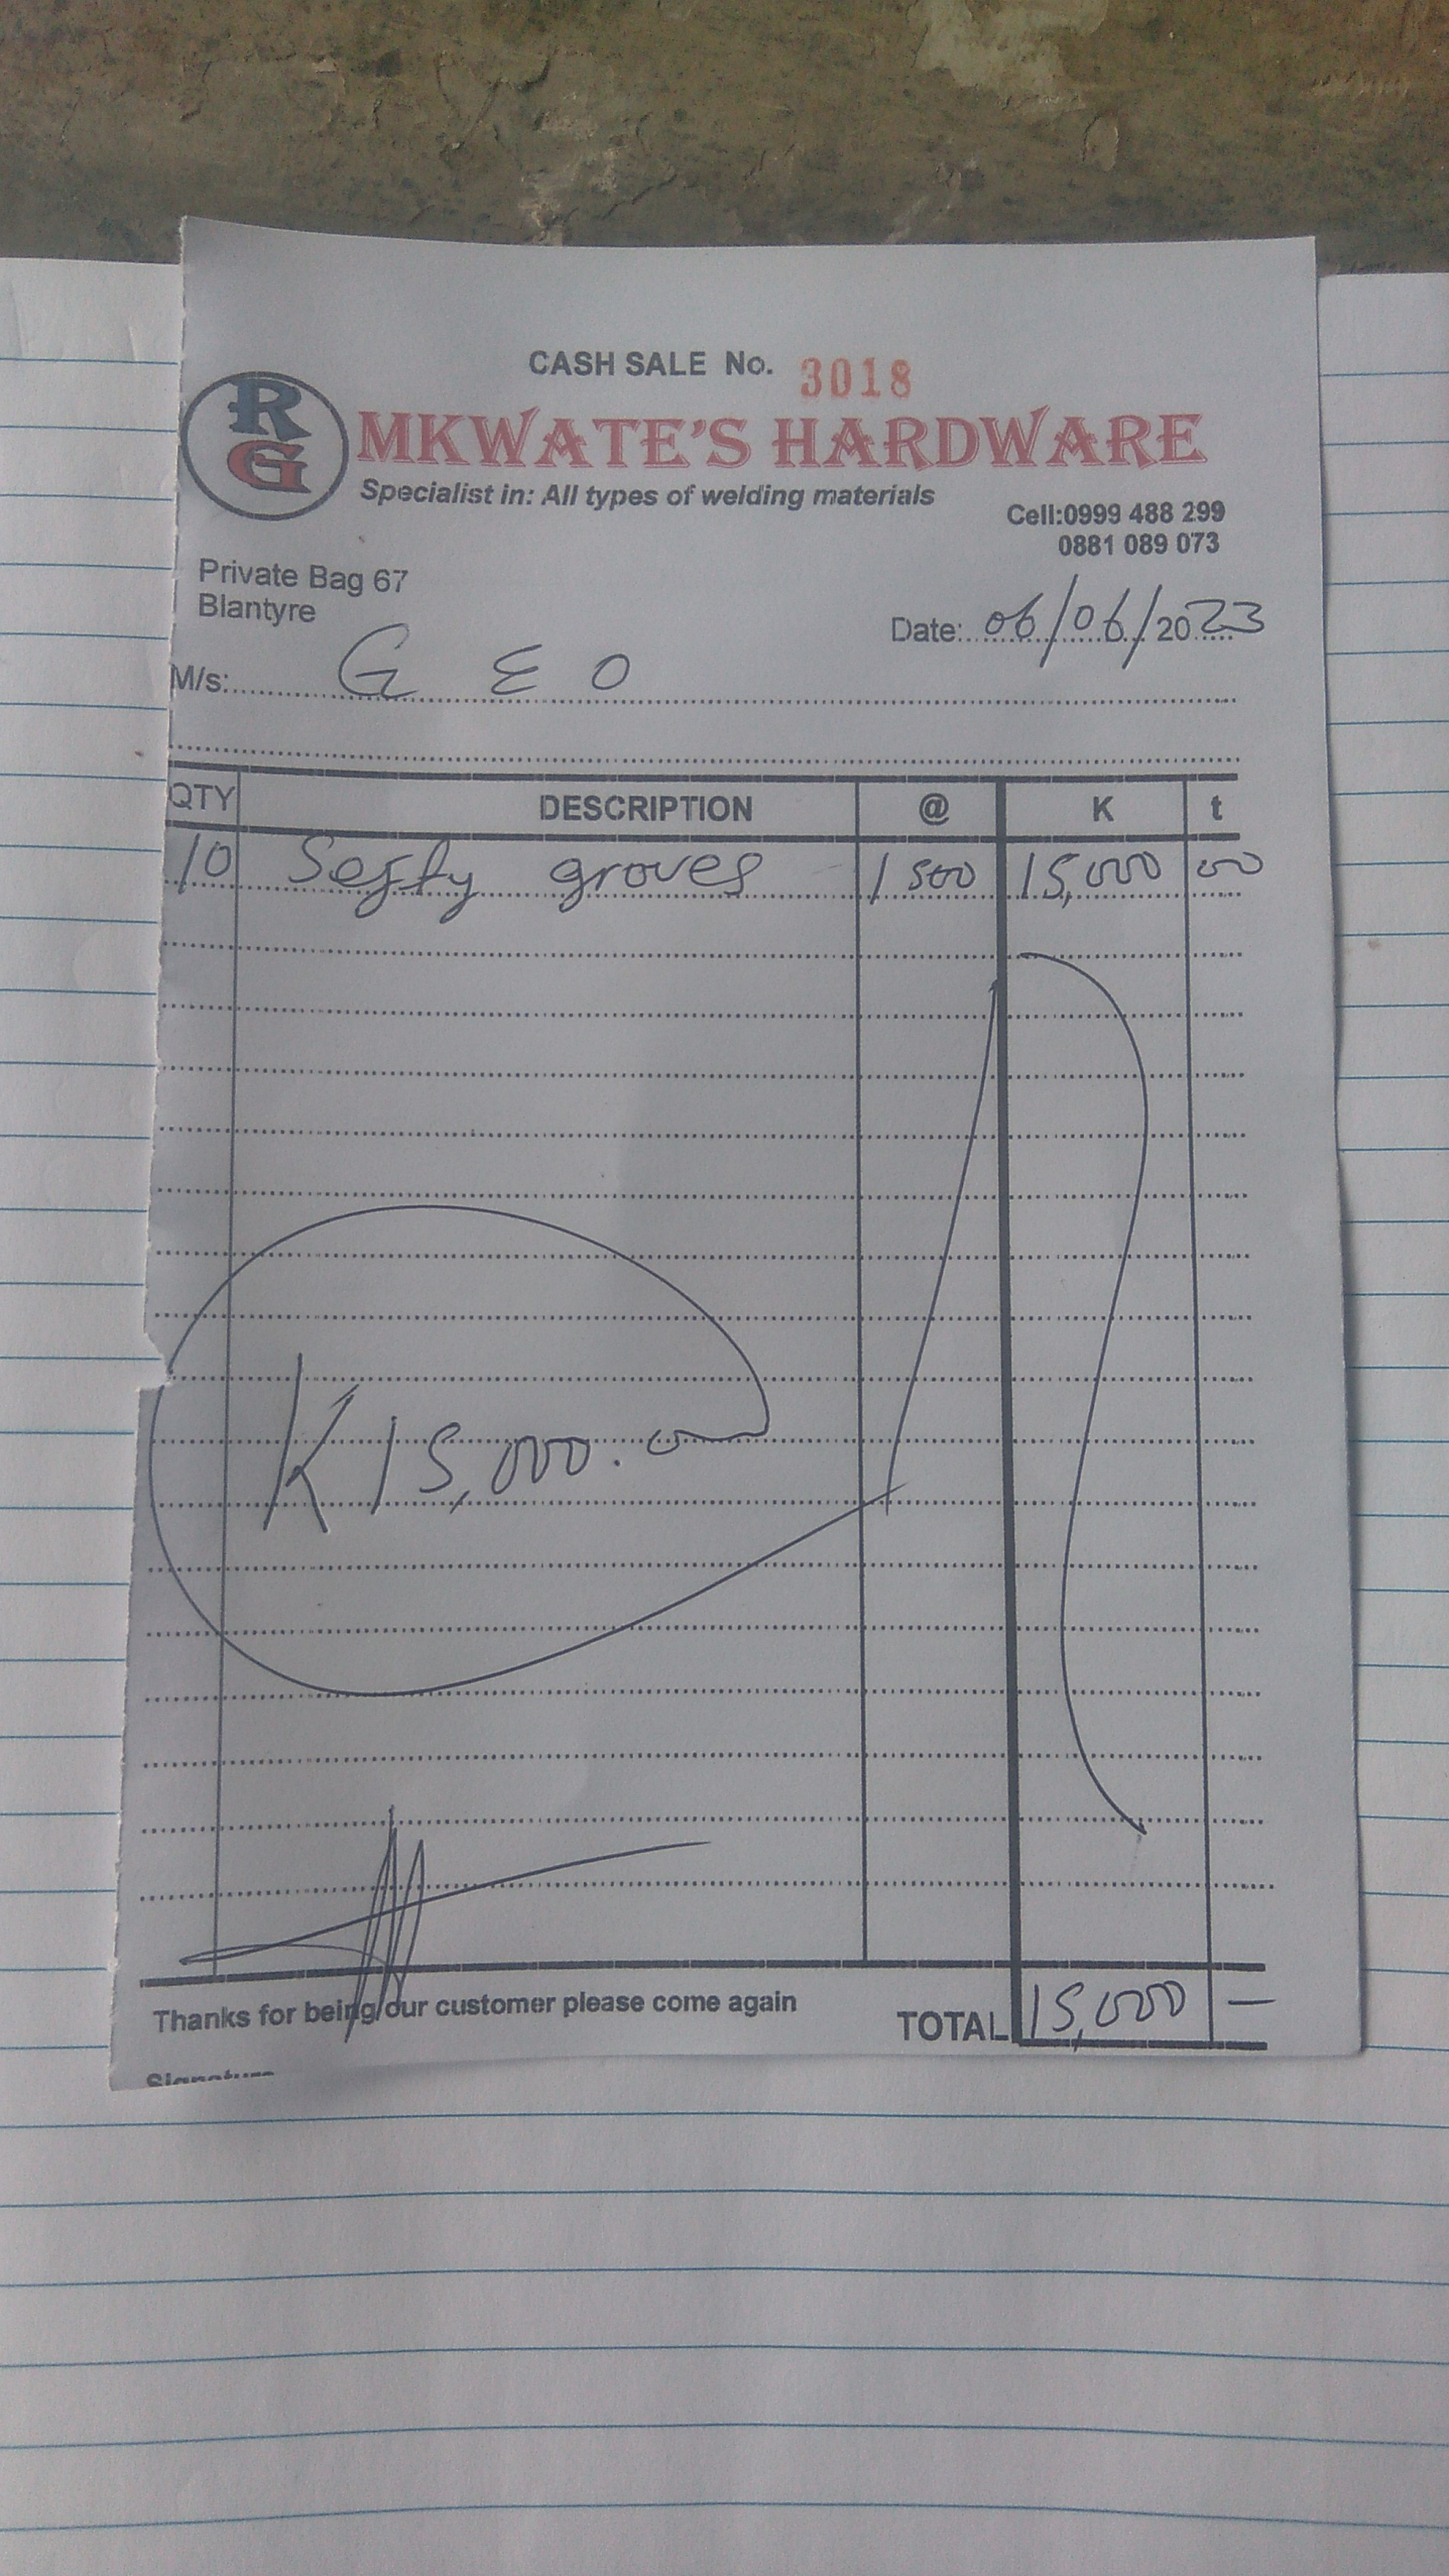 CASH SALE No. 3018
RG
MKWATE'S HARDWARE
Specialist in: All types of welding materials
Cell:0999 488 299
0881 089 073
Private Bag 67
Blantyre
Date: 06/06/2023
M/s: G E O
QTY DESCRIPTION @ K t
10 Sefty groves 1500 15,000 00
K15,000.00
Thanks for being our customer please come again
TOTAL 15,000 —
Signature